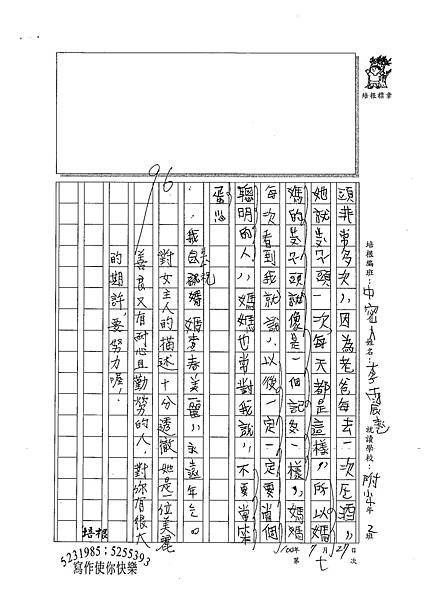 培根標章
頭非常多次，因為老爸每去一次压酒，
她就豈不頭一次每天都是這樣，所以媽
媽的豈不頭就像是一個記冬一樣，媽媽
每次看到我就說，以後一定一定要當個
聰明的人，媽媽也常對我說，不要當笨
蛋心
我祝媽媽青春美麗，永遠年乞。
對女主人的描述十分透徹，她是一位美麗
善良又有耐心且勤勞的人，對你有很大
的期許，要努力喔！
96
培根編班：中 姓名：李 就讀學校：附小 年 2 班
100年 7 月 27 日
第 七 次
培根
5231985；5255393
寫作使你快樂